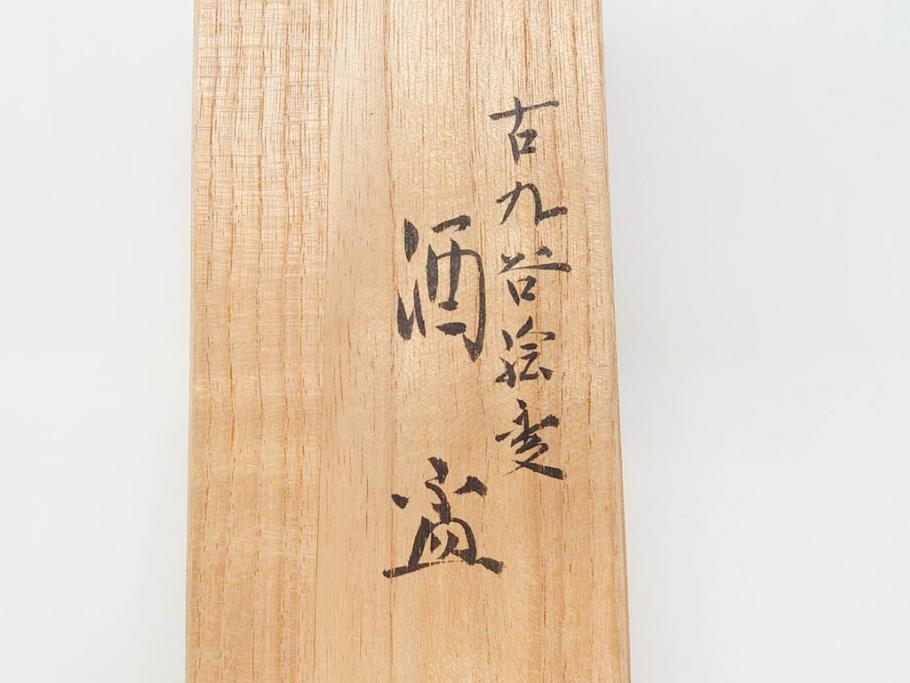 古九谷絵変
酒盃